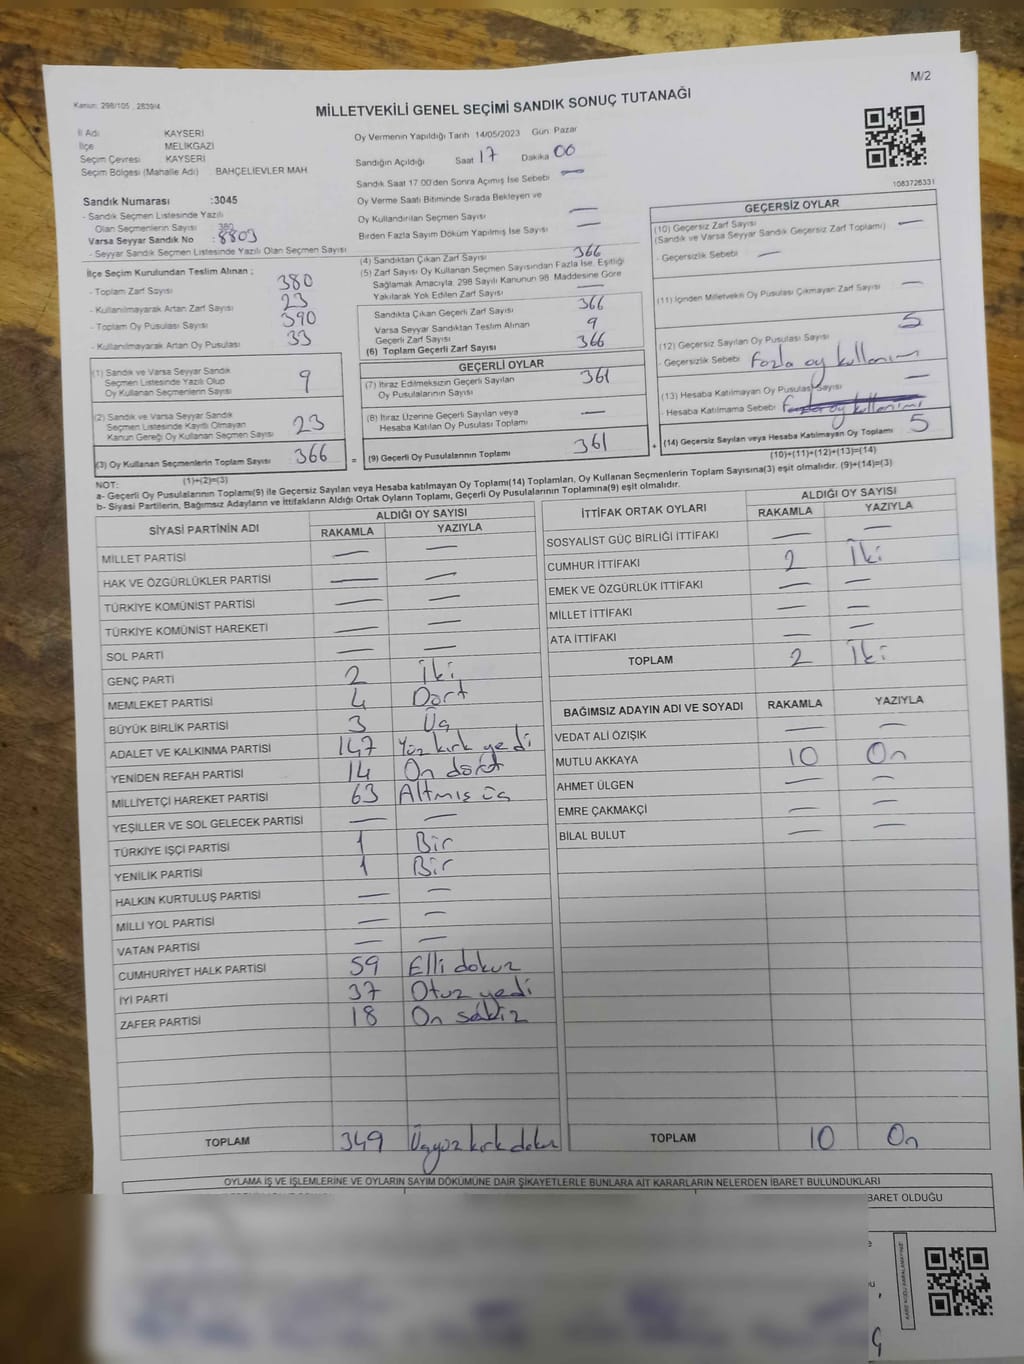 M/2
Kanun: 298/105 , 2839/4
MİLLETVEKİLİ GENEL SEÇİMİ SANDIK SONUÇ TUTANAĞI
İl Adı KAYSERİ
İlçe MELİKGAZİ
Seçim Çevresi KAYSERİ
Seçim Bölgesi (Mahalle Adı) BAHÇELİEVLER MAH
Sandık Numarası :3045
- Sandık Seçmen Listesinde Yazılı
Olan Seçmenlerin Sayısı : 380
Varsa Seyyar Sandık No : 8803
- Seyyar Sandık Seçmen Listesinde Yazılı Olan Seçmen Sayısı
İlçe Seçim Kurulundan Teslim Alınan ;
- Toplam Zarf Sayısı 380
- Kullanılmayarak Artan Zarf Sayısı 23
- Toplam Oy Pusulası Sayısı 390
- Kullanılmayarak Artan Oy Pusulası 33
(1) Sandık ve Varsa Seyyar Sandık
Seçmen Listesinde Yazılı Olup
Oy Kullanan Seçmenlerin Sayısı 9
(2) Sandık ve Varsa Seyyar Sandık
Seçmen Listesinde Kayıtlı Olmayan
Kanun Gereği Oy Kullanan Seçmen Sayısı 23
(3) Oy Kullanan Seçmenlerin Toplam Sayısı 366
(1)+(2)=(3)
Oy Vermenin Yapıldığı Tarih 14/05/2023 Gün Pazar
Sandığın Açıldığı Saat 17 Dakika 00
Sandık Saat 17 00'den Sonra Açılmış İse Sebebi —
Oy Verme Saati Bitiminde Sırada Bekleyen ve
Oy Kullandırılan Seçmen Sayısı —
Birden Fazla Sayım Döküm Yapılmış İse Sayısı —
(4) Sandıktan Çıkan Zarf Sayısı 366
(5) Zarf Sayısı Oy Kullanan Seçmen Sayısından Fazla İse, Eşitliği
Sağlamak Amacıyla, 298 Sayılı Kanunun 98. Maddesine Göre
Yakılarak Yok Edilen Zarf Sayısı —
Sandıkta Çıkan Geçerli Zarf Sayısı 366
Varsa Seyyar Sandıktan Teslim Alınan
Geçerli Zarf Sayısı 9
(6) Toplam Geçerli Zarf Sayısı 366
GEÇERLİ OYLAR
(7) İtiraz Edilmeksizin Geçerli Sayılan
Oy Pusulalarının Sayısı 361
(8) İtiraz Üzerine Geçerli Sayılan veya
Hesaba Katılan Oy Pusulası Toplamı —
= (9) Geçerli Oy Pusulalarının Toplamı 361 +
1083726331
GEÇERSİZ OYLAR
(10) Geçersiz Zarf Sayısı —
(Sandık ve Varsa Seyyar Sandık Geçersiz Zarf Toplamı)
- Geçersizlik Sebebi —
(11) İçinden Milletvekili Oy Pusulası Çıkmayan Zarf Sayısı —
(12) Geçersiz Sayılan Oy Pusulası Sayısı 5
- Geçersizlik Sebebi Fazla oy kullanım
(13) Hesaba Katılmayan Oy Pusulası Sayısı —
- Hesaba Katılmama Sebebi Fazla oy kullanımı
(14) Geçersiz Sayılan veya Hesaba Katılmayan Oy Toplamı 5
(10)+(11)+(12)+(13)=(14)
NOT:
a- Geçerli Oy Pusulalarının Toplamı(9) ile Geçersiz Sayılan veya Hesaba katılmayan Oy Toplamı(14) Toplamları, Oy Kullanan Seçmenlerin Toplam Sayısına(3) eşit olmalıdır. (9)+(14)=(3)
b- Siyasi Partilerin, Bağımsız Adayların ve İttifakların Aldığı Ortak Oyların Toplamı, Geçerli Oy Pusulalarının Toplamına(9) eşit olmalıdır.
SİYASİ PARTİNİN ADI ALDIĞI OY SAYISI
RAKAMLA YAZIYLA
MİLLET PARTİSİ — —
HAK VE ÖZGÜRLÜKLER PARTİSİ — —
TÜRKİYE KOMÜNİST PARTİSİ — —
TÜRKİYE KOMÜNİST HAREKETİ — —
SOL PARTİ — —
GENÇ PARTİ 2 İki
MEMLEKET PARTİSİ 4 Dört
BÜYÜK BİRLİK PARTİSİ 3 Üç
ADALET VE KALKINMA PARTİSİ 147 Yüz kırk yedi
YENİDEN REFAH PARTİSİ 14 On dört
MİLLİYETÇİ HAREKET PARTİSİ 63 Altmış üç
YEŞİLLER VE SOL GELECEK PARTİSİ — —
TÜRKİYE İŞÇİ PARTİSİ 1 Bir
YENİLİK PARTİSİ 1 Bir
HALKIN KURTULUŞ PARTİSİ — —
MİLLİ YOL PARTİSİ — —
VATAN PARTİSİ — —
CUMHURİYET HALK PARTİSİ 59 Elli dokuz
İYİ PARTİ 37 Otuz yedi
ZAFER PARTİSİ 18 On sekiz
TOPLAM 349 Üçyüz kırk dokuz
İTTİFAK ORTAK OYLARI ALDIĞI OY SAYISI
RAKAMLA YAZIYLA
SOSYALİST GÜÇ BİRLİĞİ İTTİFAKI — —
CUMHUR İTTİFAKI 2 İki
EMEK VE ÖZGÜRLÜK İTTİFAKI — —
MİLLET İTTİFAKI — —
ATA İTTİFAKI — —
TOPLAM 2 İki
BAĞIMSIZ ADAYIN ADI VE SOYADI RAKAMLA YAZIYLA
VEDAT ALİ ÖZIŞIK — —
MUTLU AKKAYA 10 On
AHMET ÜLGEN — —
EMRE ÇAKMAKÇİ — —
BİLAL BULUT — —
TOPLAM 10 On
OYLAMA İŞ VE İŞLEMLERİNE VE OYLARIN SAYIM DÖKÜMÜNE DAİR ŞİKAYETLERLE BUNLARA AİT KARARLARIN NELERDEN İBARET BULUNDUKLARI
BARET OLDUĞU